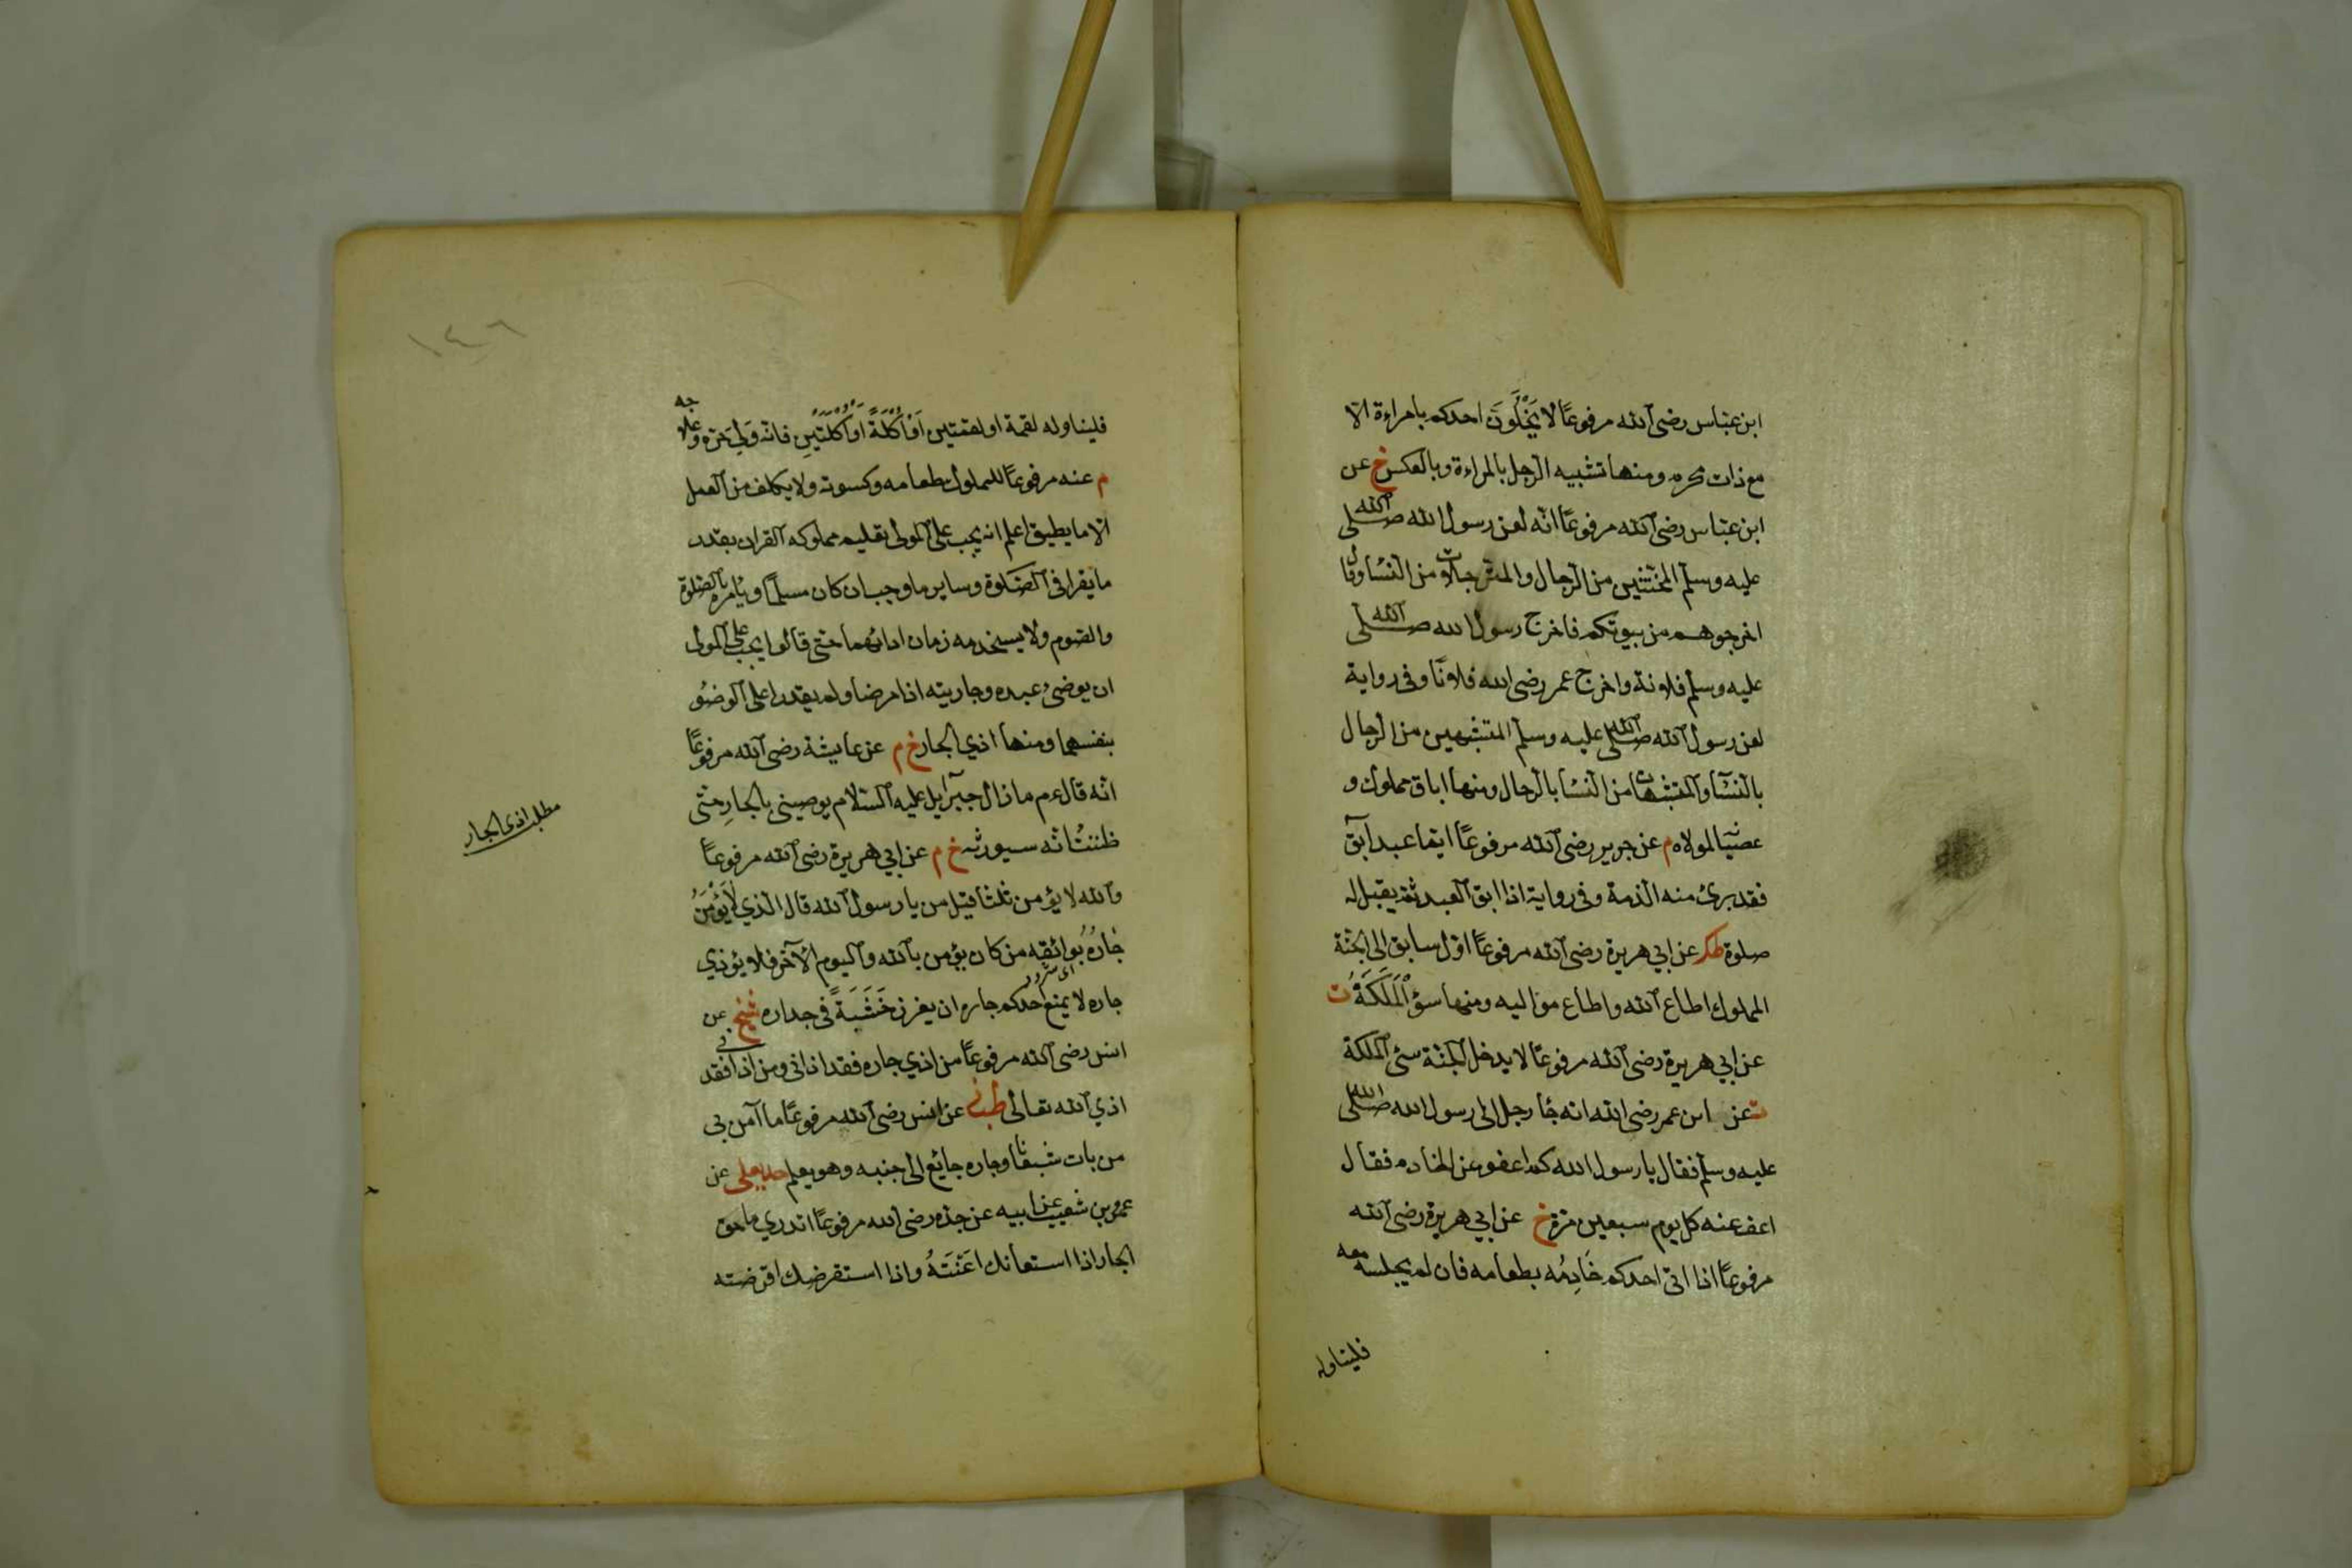 ابن عباس رضى الله مرفوعًا لا يَخْلُوَنّ احدكم بامراءة الا
مع ذات محرم ومنها تشبيه الرجل بالمراءة وبالعكس خ عن
ابن عباس رضى الله مرفوعًا انه لعن رسول الله صلى الله
عليه وسلم المخنثين من الرجال والمترجلات من النساء وقال
اخرجوهم من بيوتكم فاخرج رسول الله صلى الله
عليه وسلم فلانة واخرج عمر رضى الله فلانًا وفى رواية
لعن رسول الله صلى الله عليه وسلم المتشبهين من الرجال
بالنساء والمتشبهات من النساء بالرجال ومنها اباق مملوك و
عصيانه لمولاه م عن جرير رضى الله مرفوعًا ايما عبد آبق
فقد برئ منه الذمة وفى رواية اذا ابق العبد لم يقبل له
صلوة طكر عن ابي هريرة رضى الله مرفوعًا اوّل سابق الى الجنة
المملوك اطاع الله واطاع مواليه ومنها سوُ المَلَكَةُ ت
عن ابي هريرة رضى الله مرفوعًا لا يدخل الجنة سئ الملكة
ت عن ابن عمر رضى الله انه جاء رجل الى رسول الله صلى الله
عليه وسلم فقال يا رسول الله كم اعفو عن الخادم فقال
اعف عنه كل يوم سبعين مرة خ عن ابي هريرة رضى الله
مرفوعًا اذا اتى احدكم خَادِمُه بطعامه فان لم يجلسه معه
فليناوله
١٤٦
فليناوله لقمة او لقمتين اَوْ اُكْلَةً اَوْ اُكْلَتَيْنِ فانه وَلِيَ حَرّه وعلاجه
م عنه مرفوعًا للمملوك طعامه وكسوته ولا يكلف من العمل
الا ما يطيق اعلم انه يجب على المولى تعليم مملوكه القران بقدر
ما يقرا فى الصلوة وساير ما وجب ان كان مسلمًا ويأمره بالصلوة
والصوم ولا يستخدمه زمان ادائهما حتى قالوا يجب على المولى
ان يوضئ عبده وجاريته اذا مرضا ولم يقدرا على الوضوُ
بنفسهما ومنها اذي الجار خ م عن عايشة رضى الله مرفوعًا
انه قال ءم ما زال جبرآيل عليه السلام يوصينى بالجارِ حتى
ظننتُ انه سيورثه خ م عن ابي هريرة رضى الله مرفوعًا
والله لا يؤمن ثلثا قيل من يا رسول الله قال الذي لا يَؤْمَنُ
جَارُهُ بَوائقه من كان يؤمن بالله واليوم الآخر فلا يؤذي
جاره لا يمنع احدكم جاره ان يغرز خَشَبَةً فى جداره شيخ عن
انس رضى الله مرفوعًا من اذي جاره فقد اذانى ومن اذانى فقد
اذي الله تعالى طبانى عن انس رضى الله مرفوعًا ما آمن بى
من بات شبعانًا وجاره جايع الى جنبه وهو يعلم حد يعلى عن
عمرو بن شعيب عن ابيه عن جدّه رضى الله مرفوعًا اتدري ما حق
الجار اذا استعانك اَعَنْتَهُ واذا استقرضك اقرضته
مطلب اذى الجار